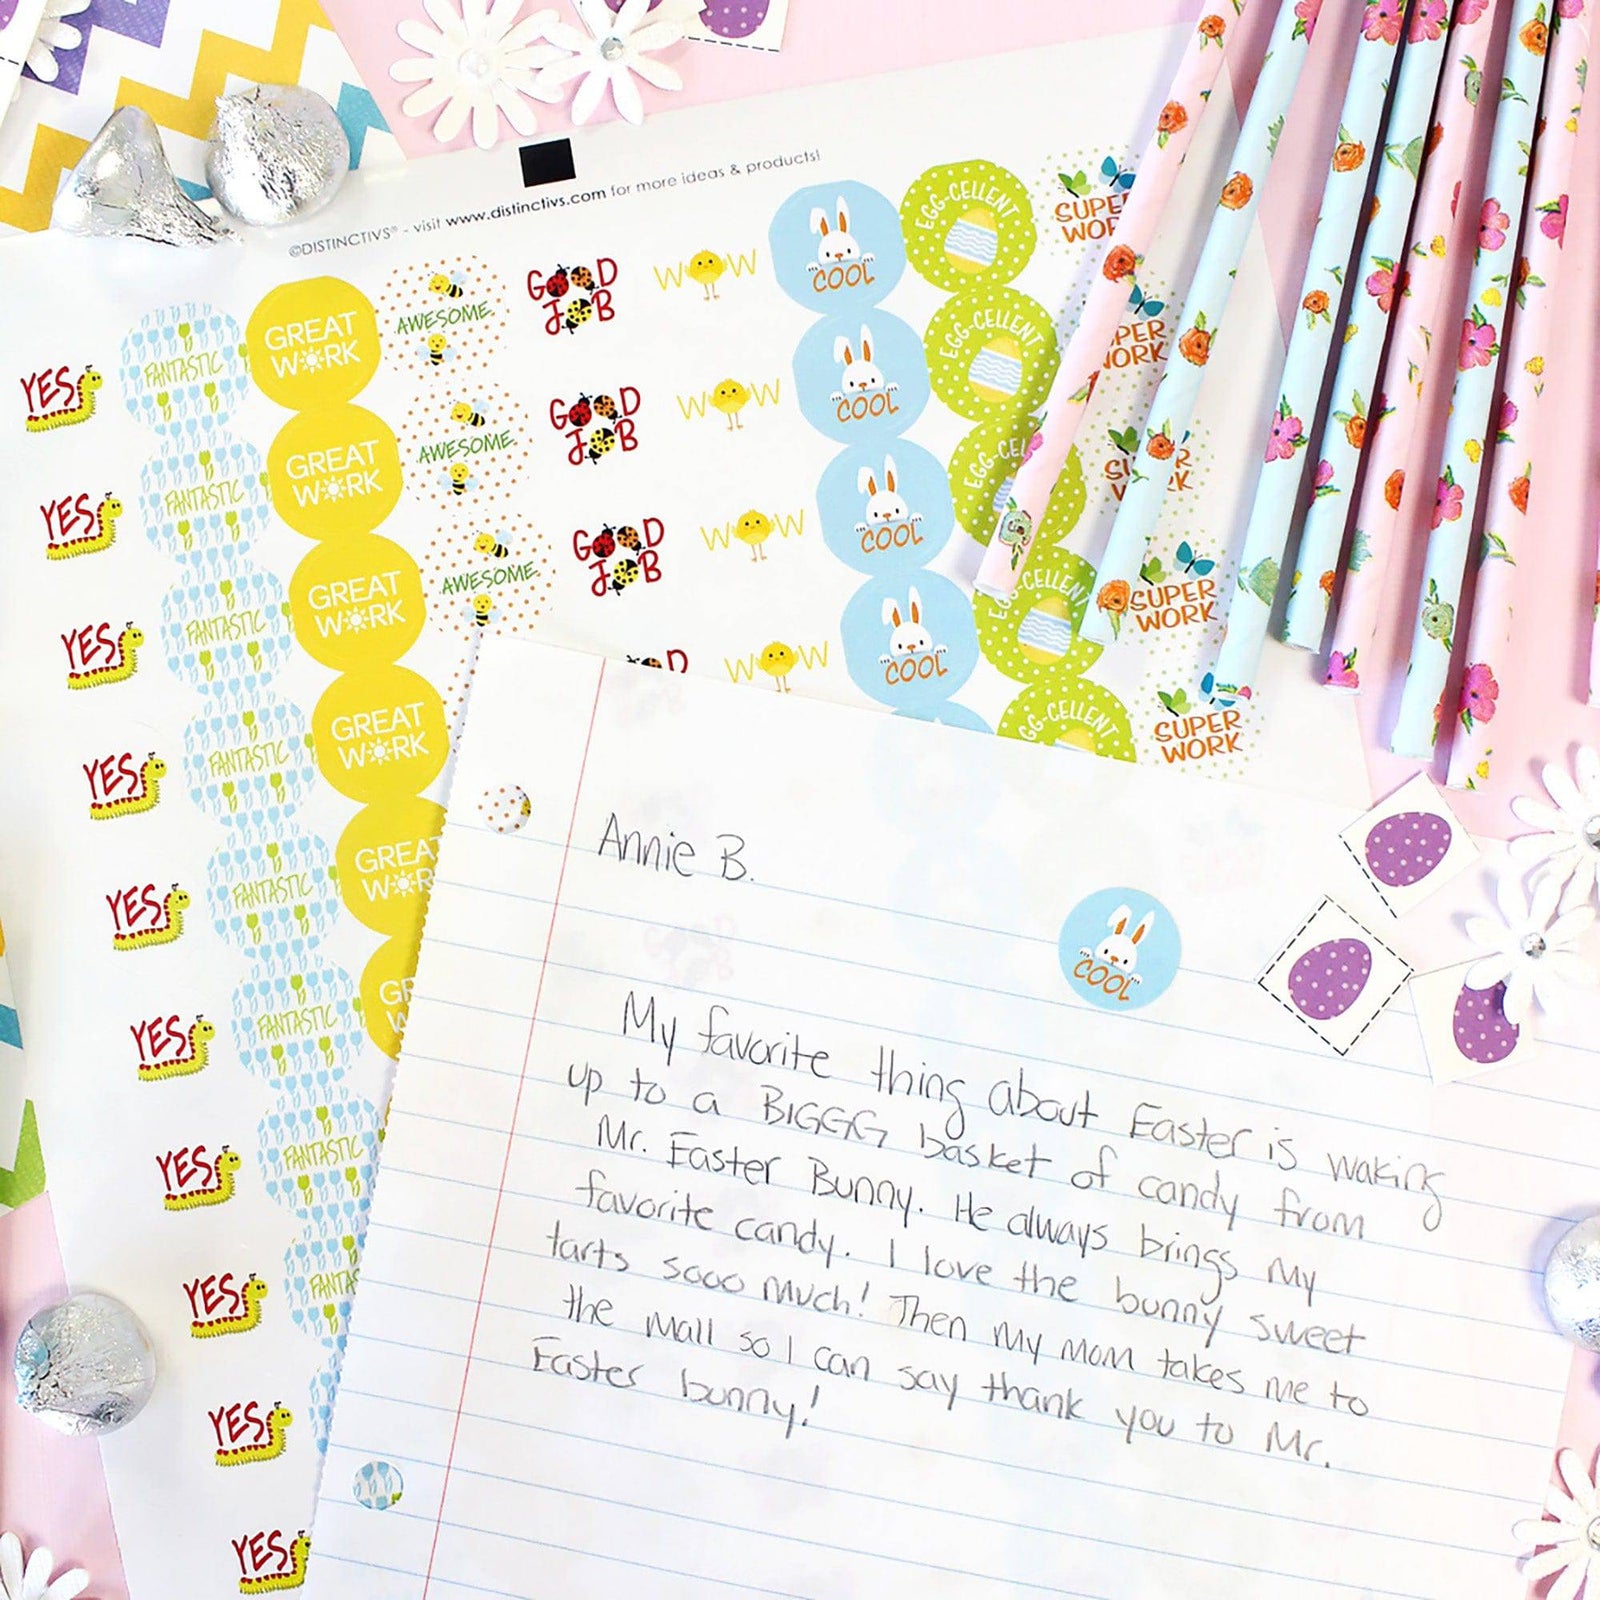 ©DISTINCTIVS® - visit www.distinctivs.com for more ideas & products!
YES
YES
YES
YES
YES
YES
YES
YES
YES
YES
FANTASTIC
FANTASTIC
FANTASTIC
FANTASTIC
FANTASTIC
FANTASTIC
FANTASTIC
GREAT
WORK
GREAT
WORK
GREAT
WORK
GREAT
WORK
AWESOME
AWESOME
AWESOME
GOOD
JOB
GOOD
JOB
GOOD
JOB
WOW
WOW
WOW
WOW
COOL
COOL
COOL
COOL
EGG-CELLENT
EGG-CELLENT
EGG-CELLENT
SUPER
WORK
SUPER
WORK
Annie B.
COOL
My favorite thing about Easter is waking
up to a BIGGGG basket of candy from
Mr. Easter Bunny. He always brings my
favorite candy. I love the bunny sweet
tarts sooo much! Then my mom takes me to
the mall so I can say thank you to Mr.
Easter bunny!